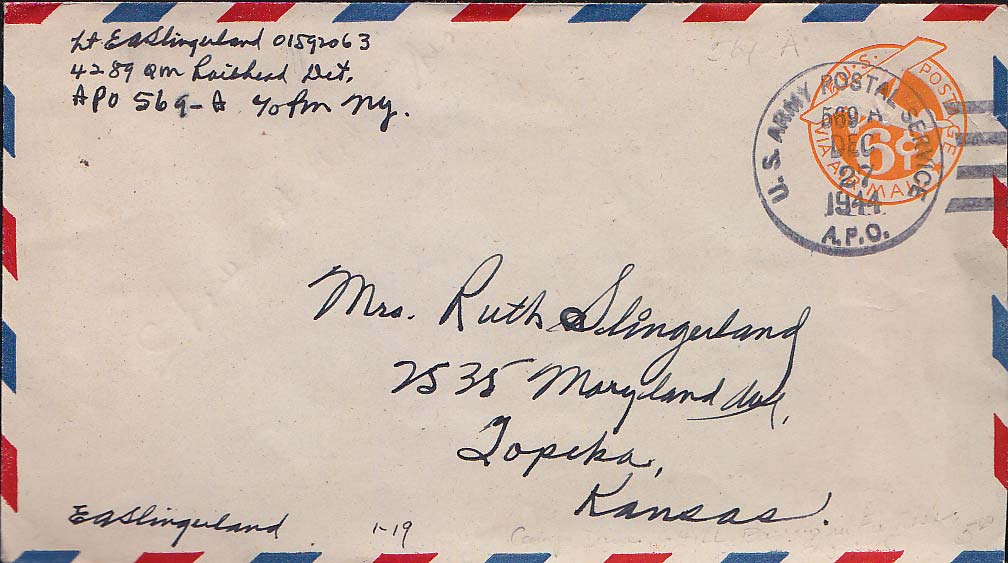 Lt EASlingerland 01592063
4289 QM Railhead Det.
APO 569-A % Pm Ny.
564 A
U.S. POSTAGE
VIA AIR MAIL
6¢
U.S. ARMY POSTAL SERVICE
569 A
DEC
27
1944
A.P.O.
Mrs. Ruth Slingerland
2535 Maryland Ave,
Topeka,
Kansas.
EASlingerland
1-19